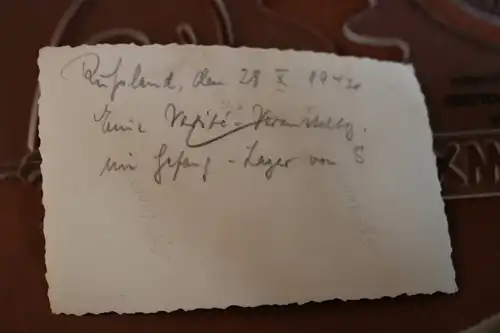 Rußland, den 28 X 1942
Eine Varité-Veranstaltg.
im Gefang-Lager von S